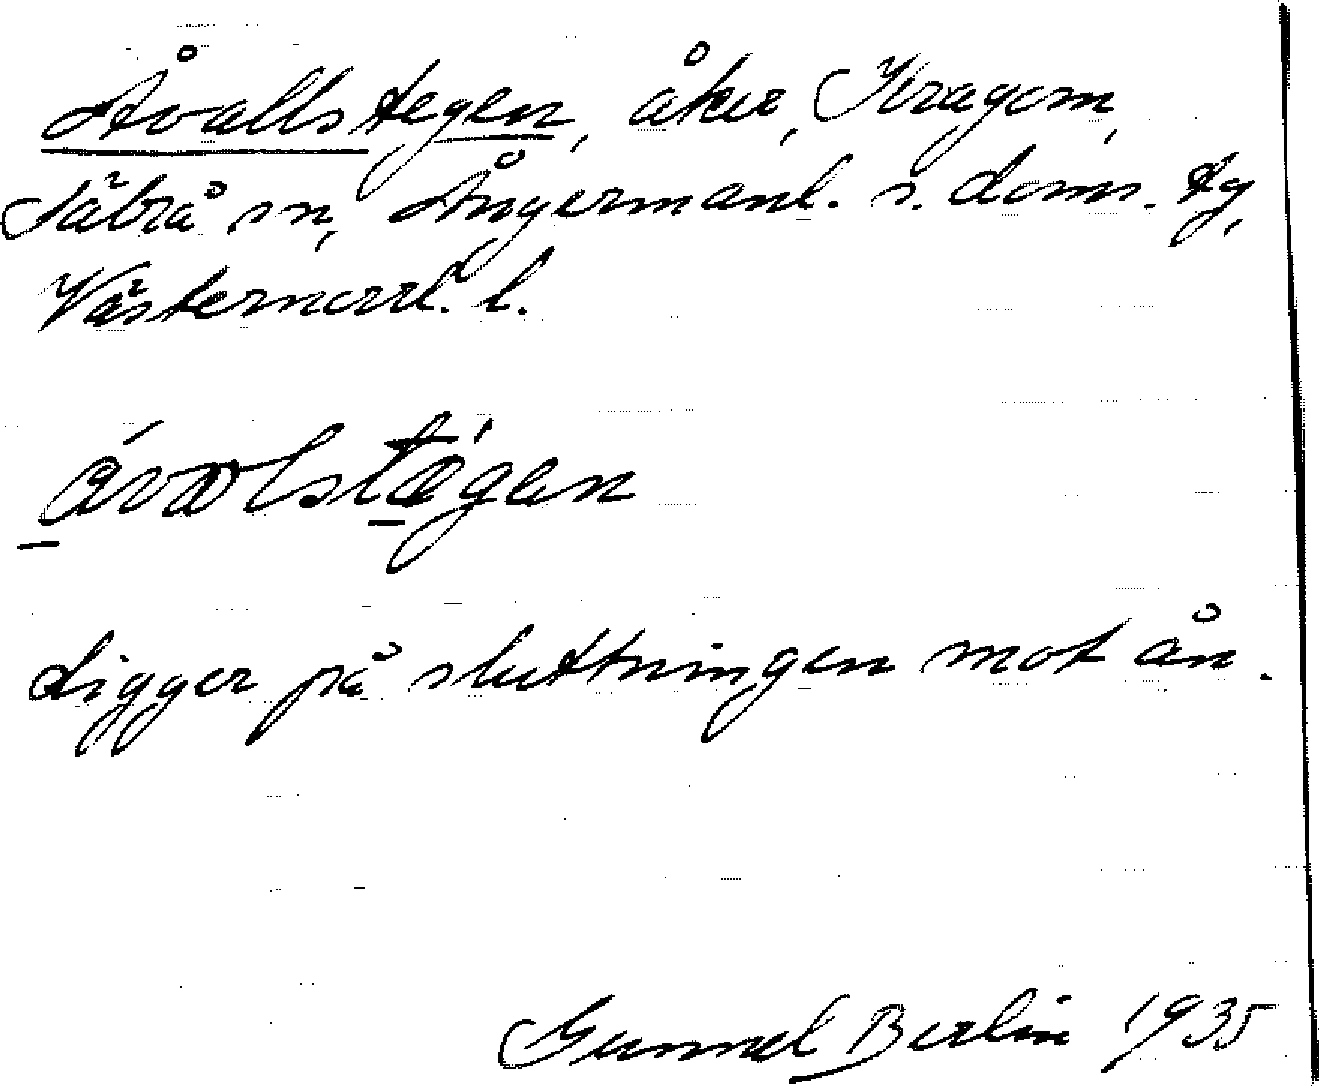 Åvallstegen, åker, Kragom,
Säbrå sn, Ångermanl. s. doms. tg,
Västernorrl. l.
åvalstégen
Ligger på sluttningen mot ån.
Gunnel Berlin 1935